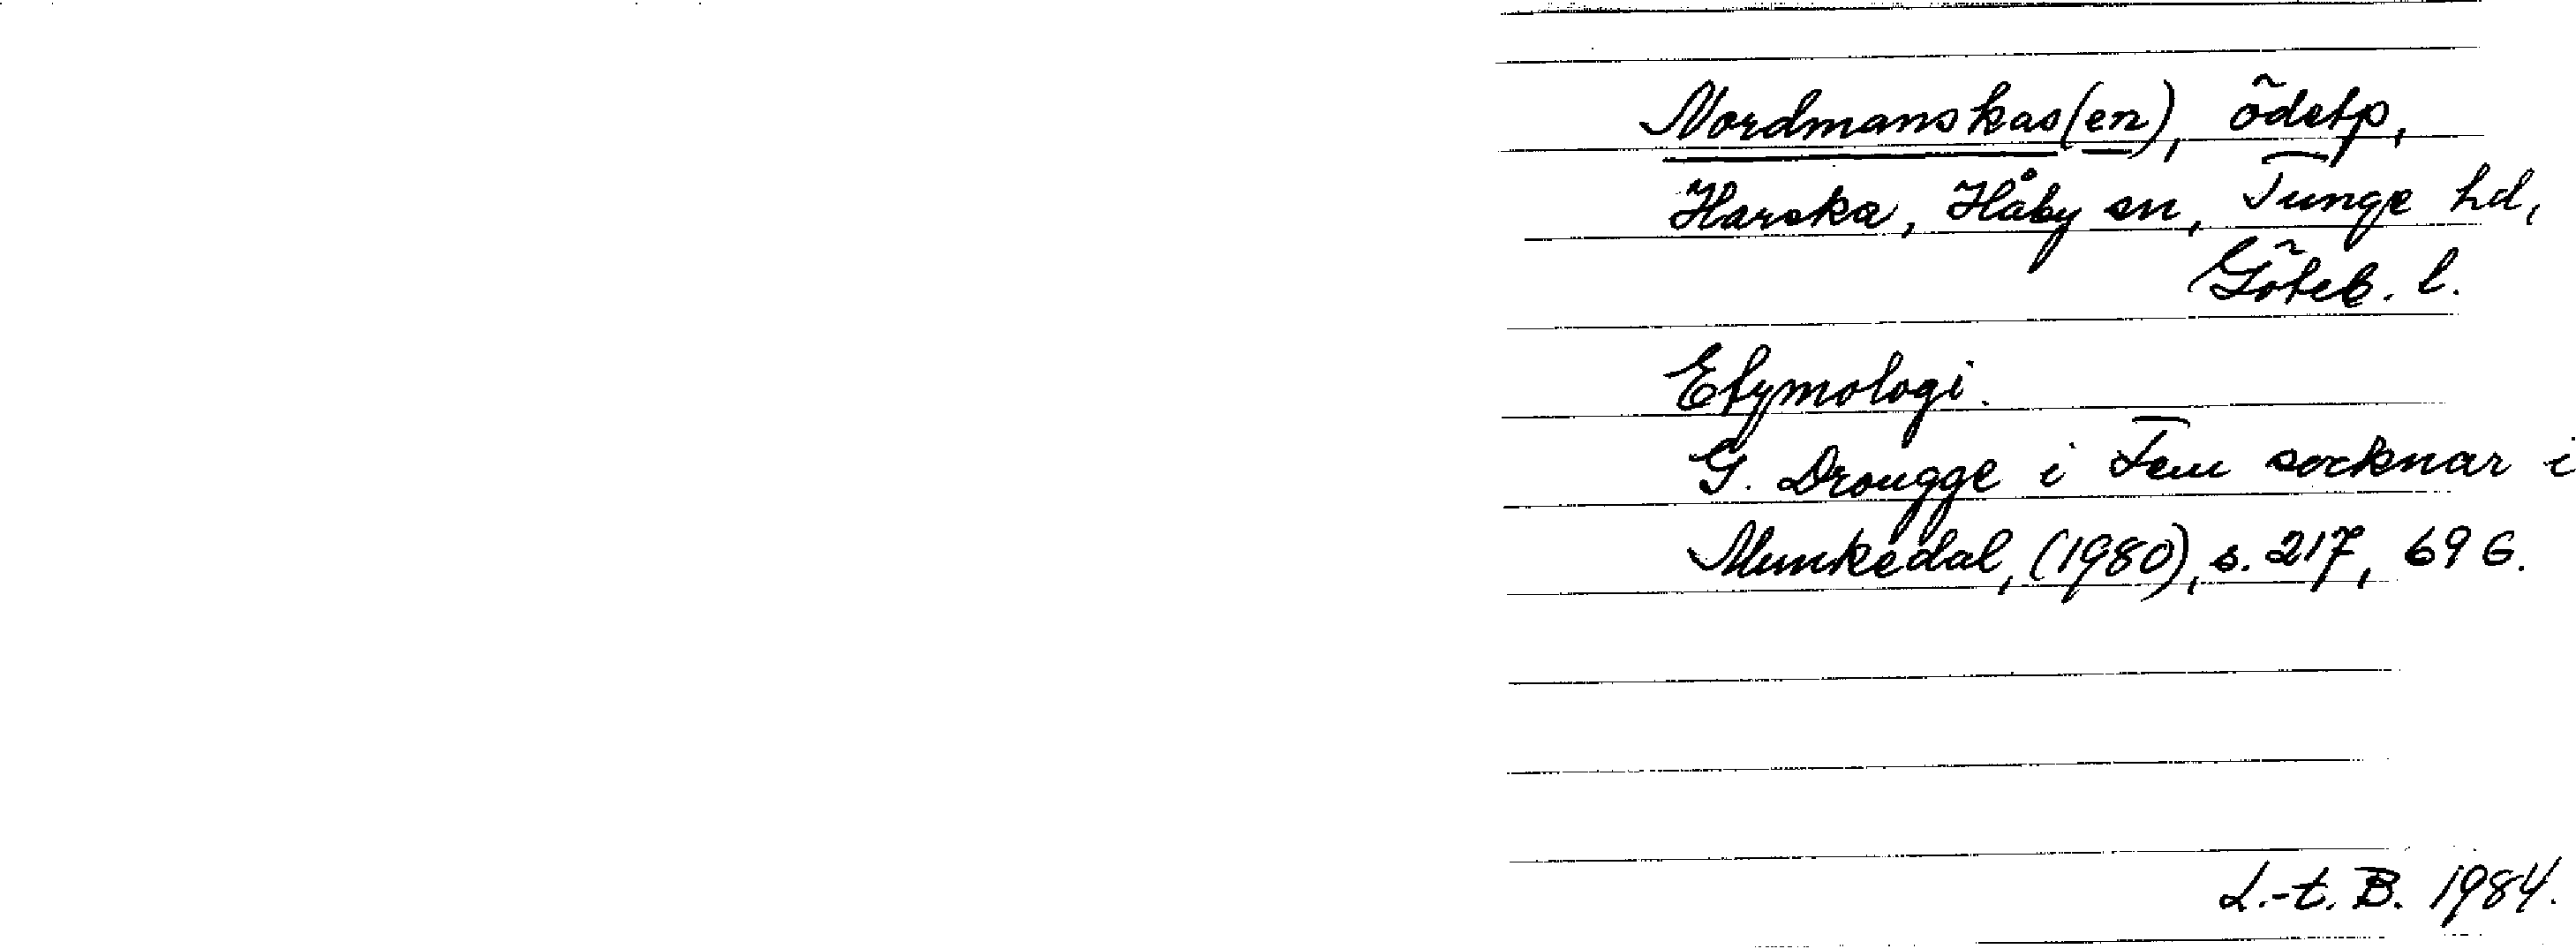 Nordmanskas(en), ödetp,
Harska, Håby sn, Tunge hd,
Göteb. l.
Etymologi.
G. Drougge i Fem socknar i
Munkedal, (1980), s. 217, 696.
L.-t. B. 1984.